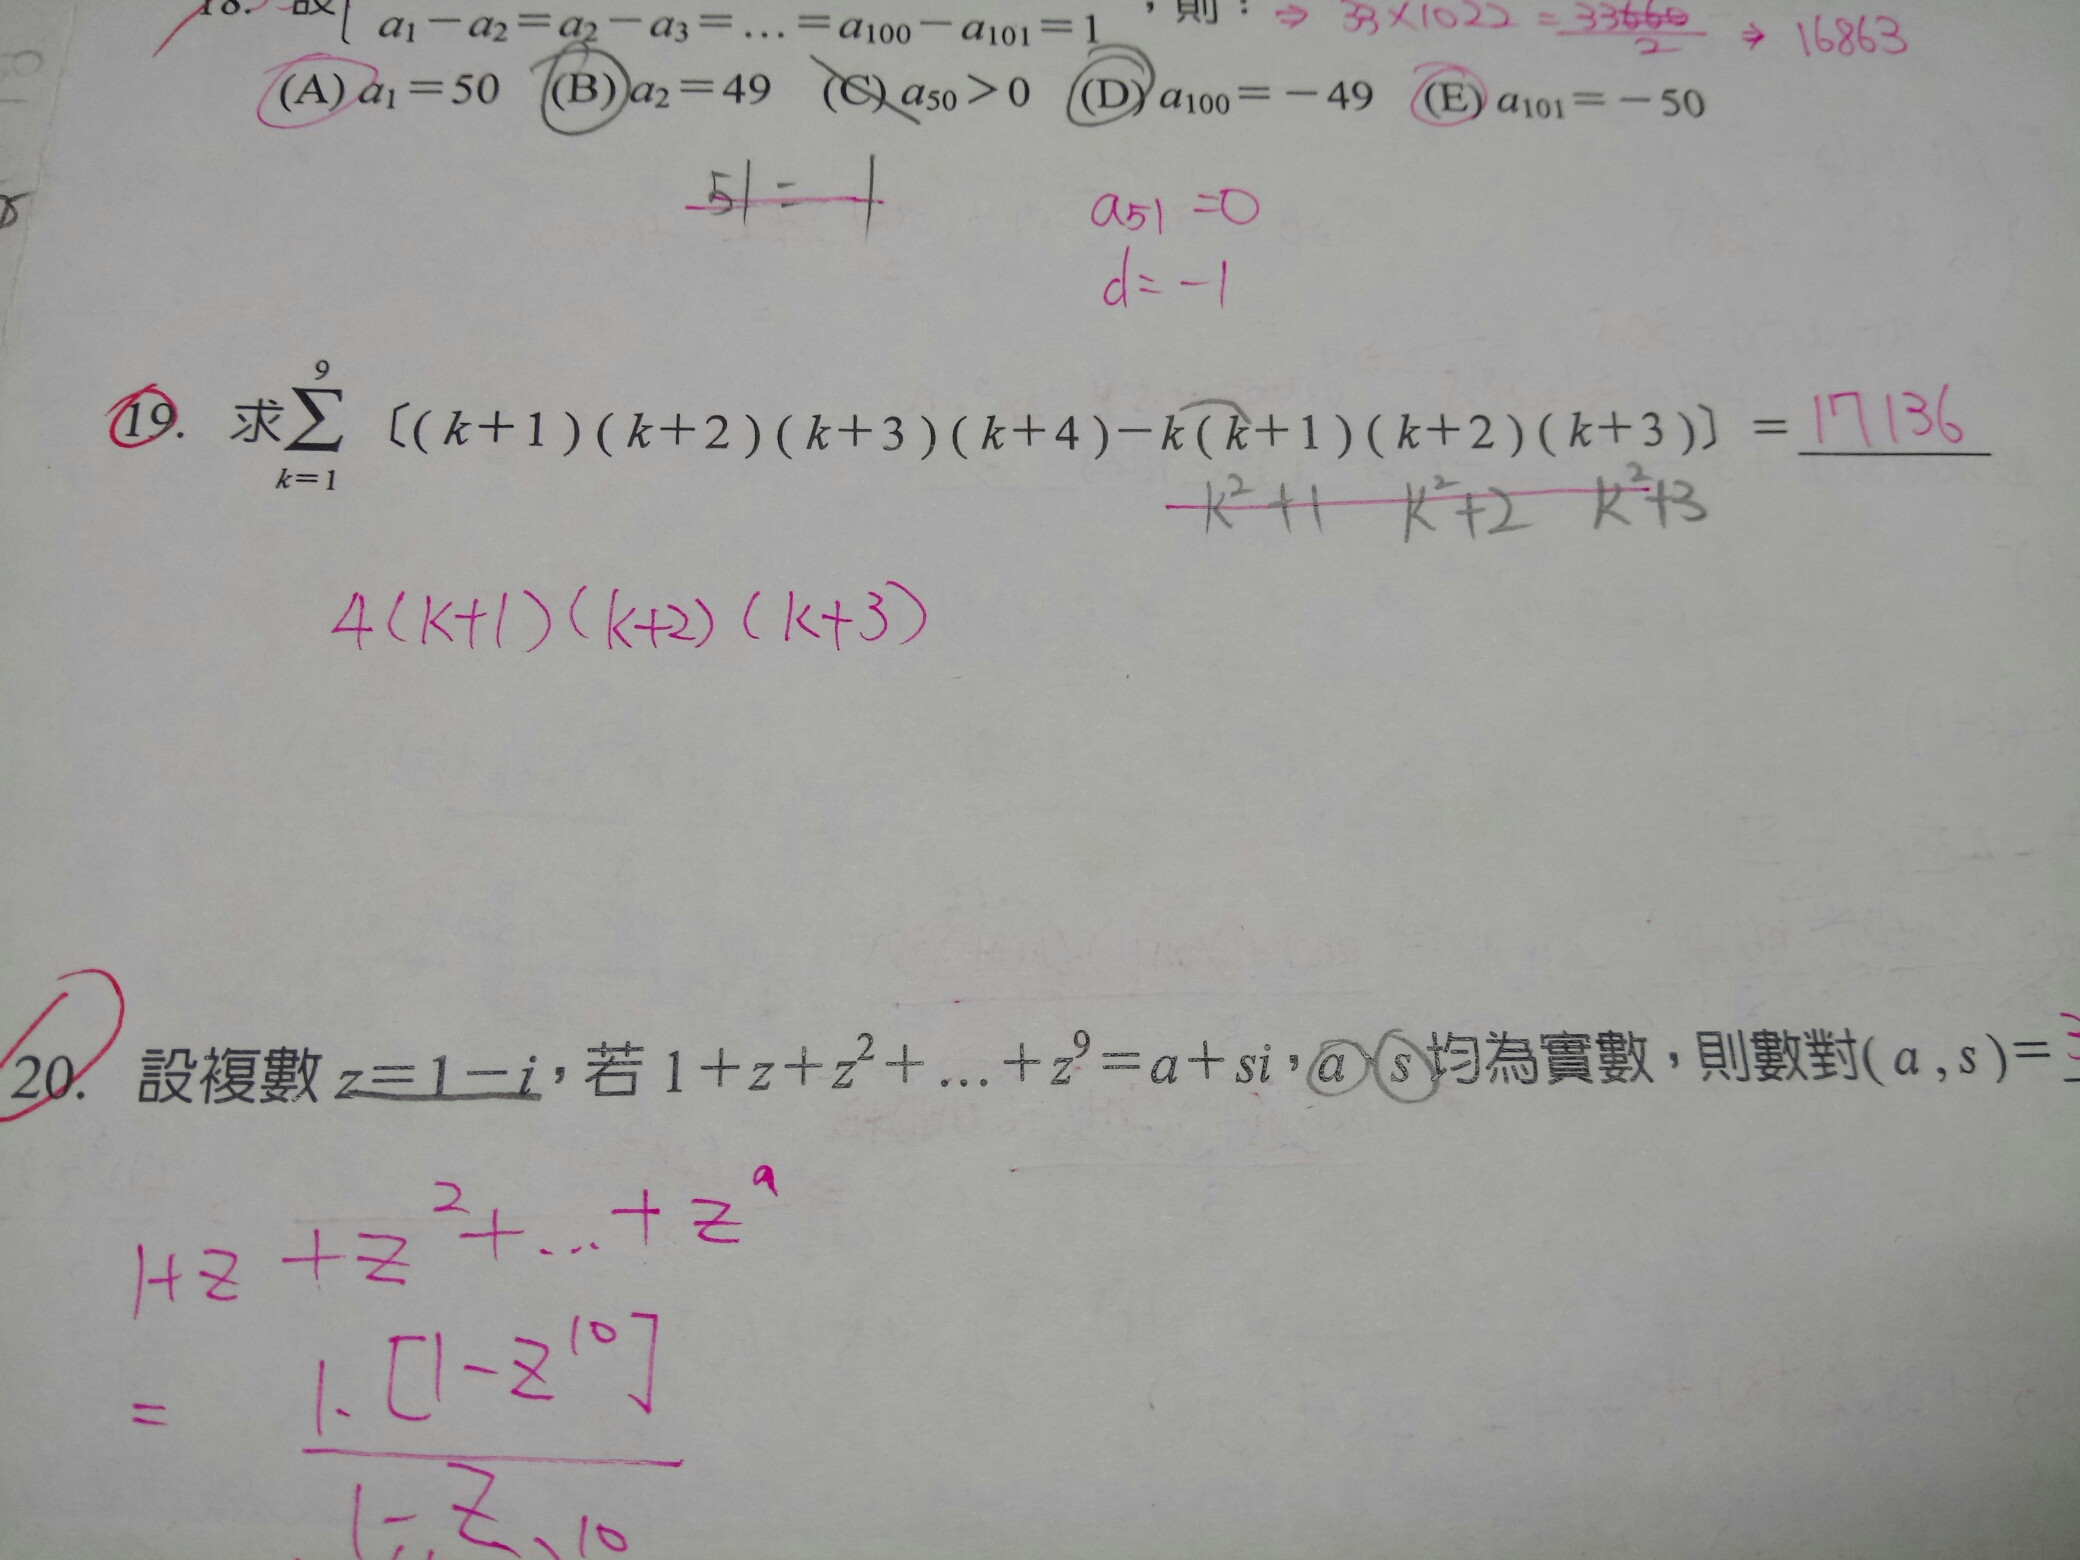 18. 設{ a₁－a₂＝a₂－a₃＝…＝a₁₀₀－a₁₀₁＝1 ，則： ⇒ 33×1022 = 33660/2 ⇒ 16863
(A) a₁＝50 (B) a₂＝49 (C) a₅₀＞0 (D) a₁₀₀＝－49 (E) a₁₀₁＝－50
51 = -1
a51 =0
d= -1
19. 求∑_{k=1}^{9}〔(k+1)(k+2)(k+3)(k+4)－k(k+1)(k+2)(k+3)〕＝17136
k²+1 k²+2 k²+3
4(k+1)(k+2)(k+3)
20. 設複數 z＝1－i，若 1＋z＋z²＋…＋z⁹＝a＋si，a、s 均為實數，則數對(a,s)＝
1+z +z²+...+z⁹
= 1·[1-z¹⁰]
1-z
10